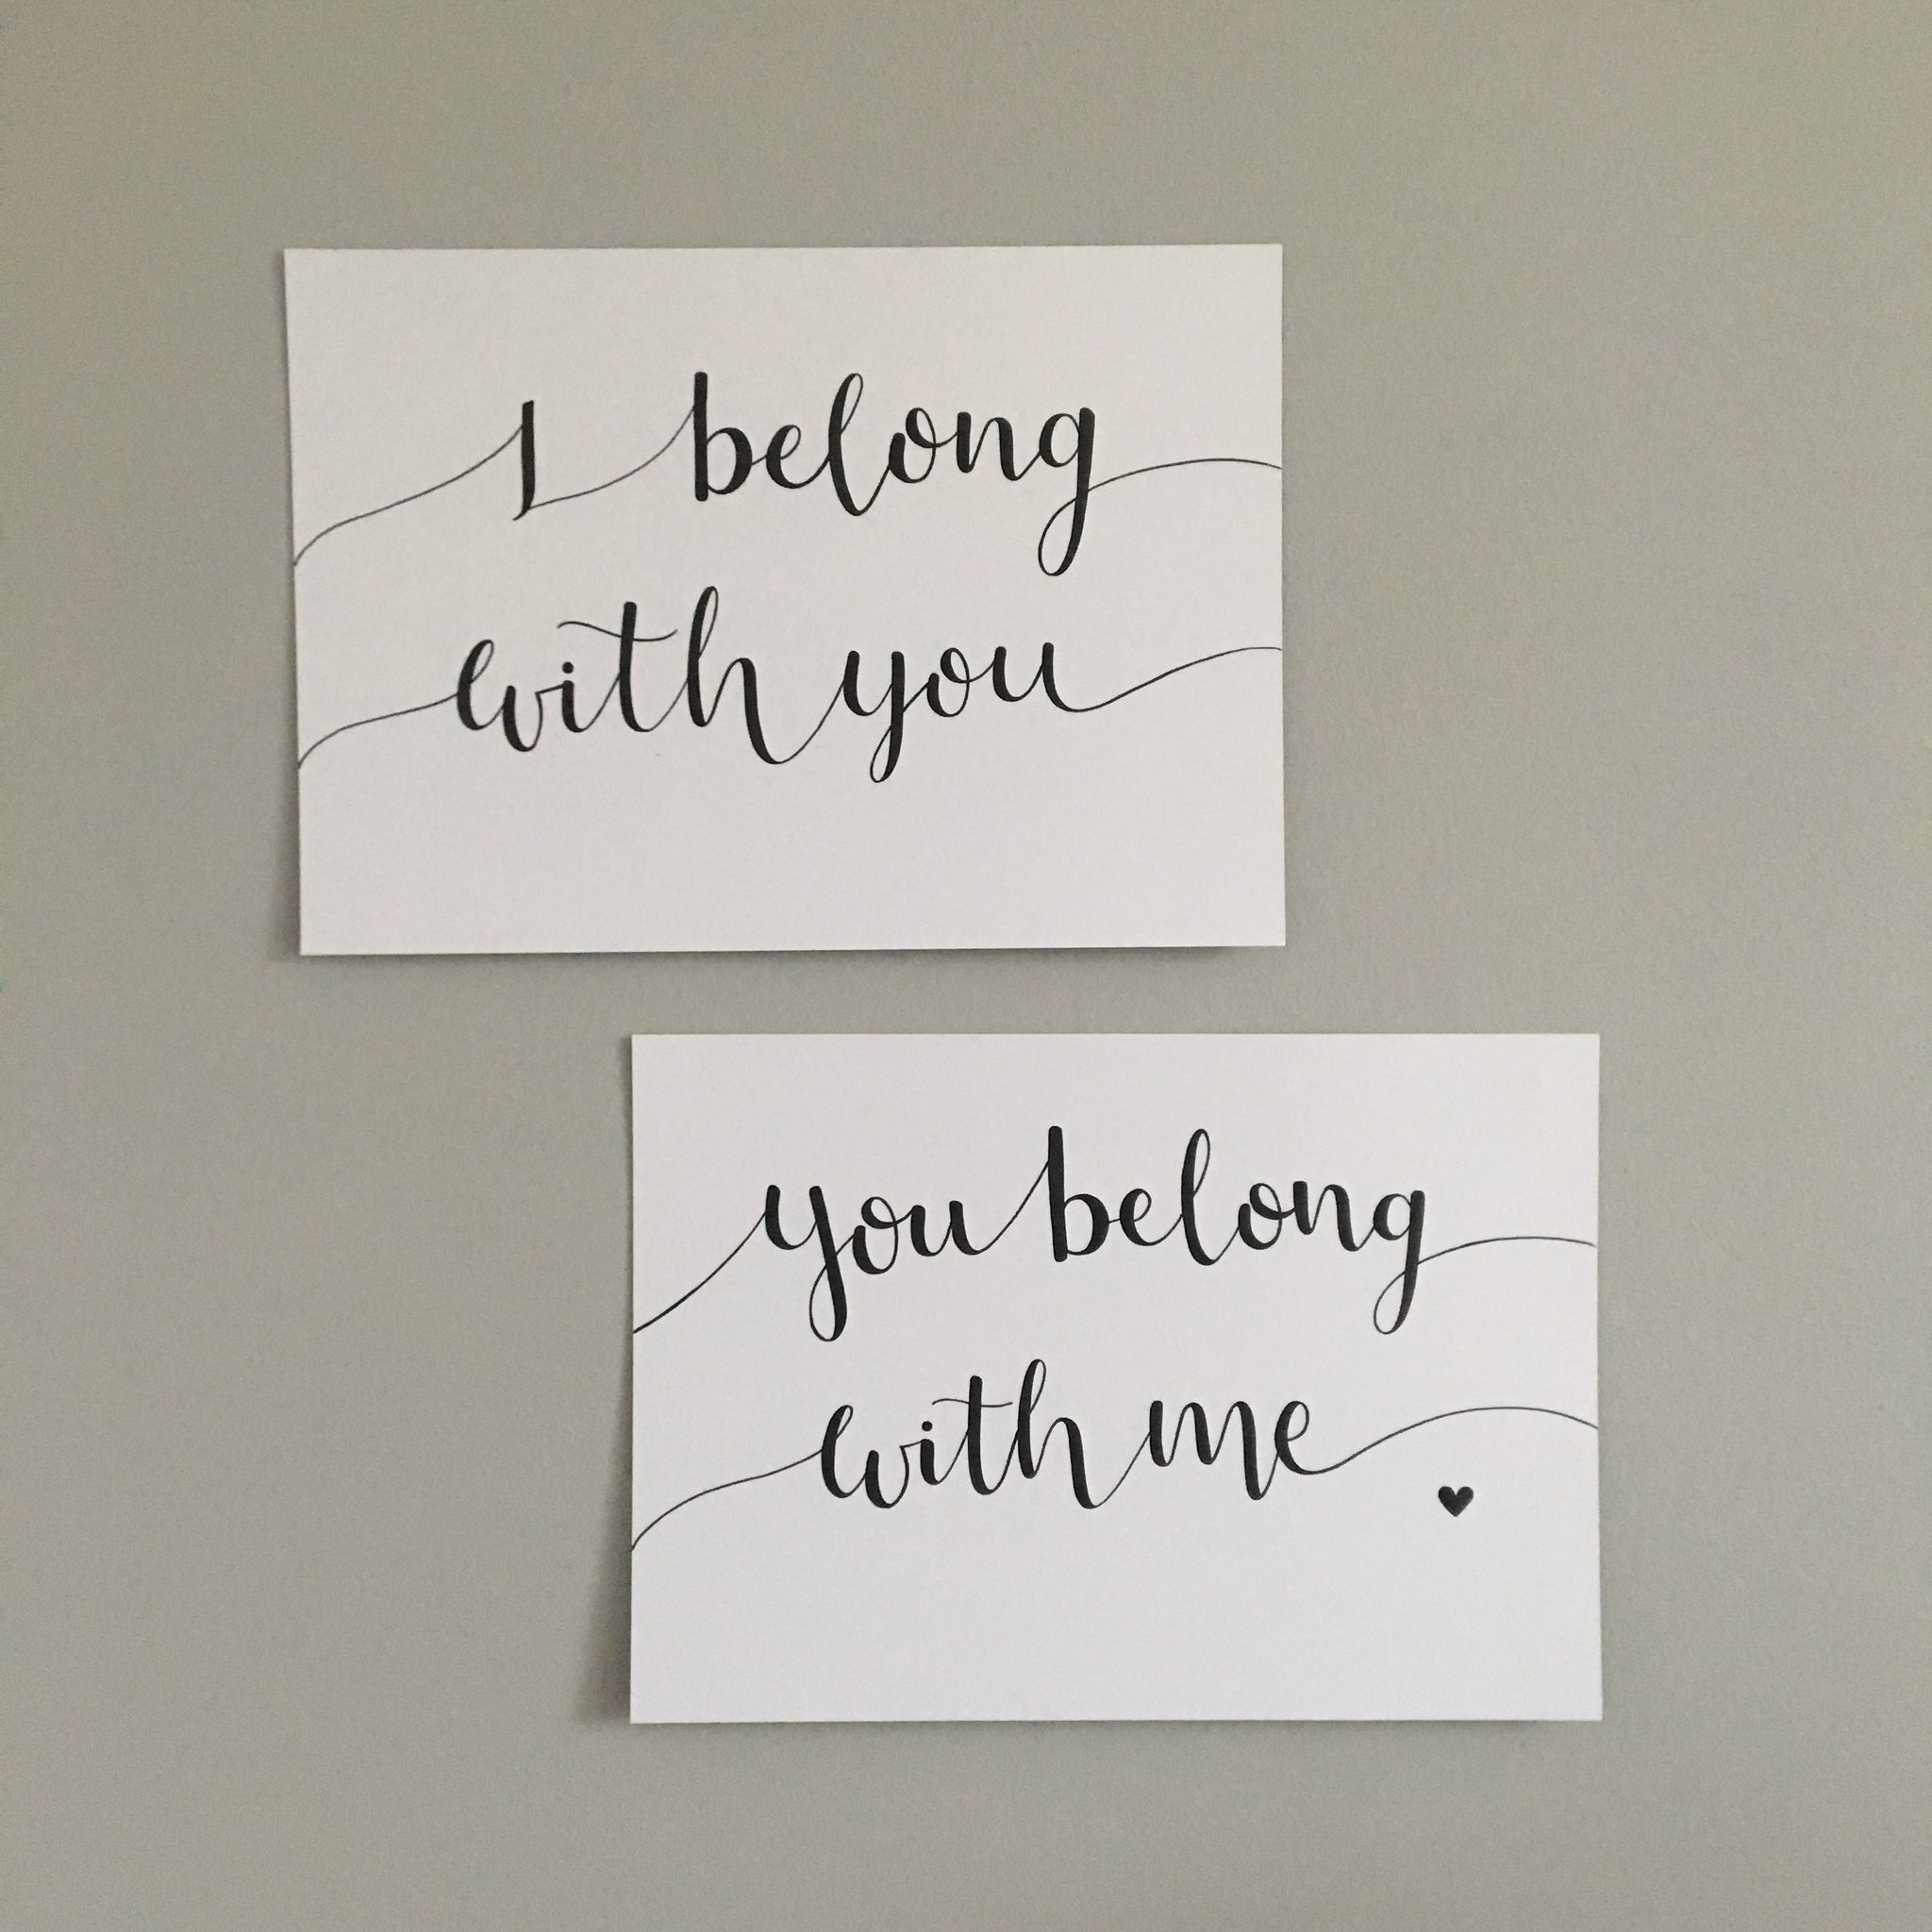 I belong
with you
you belong
with me